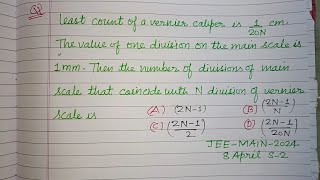 Q) least count of a vernier caliper is 1/20N cm.
The value of one division on the main scale is
1mm. Then the number of divisions of main
scale that coincide with N division of vernier
scale is (A) (2N-1) (B) (2N-1)/N
(C) (2N-1)/2 (D) (2N-1)/20N
JEE-MAIN-2024
8 April S-2